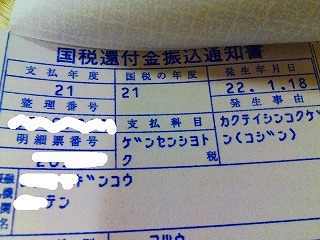 国税還付金振込通知書
支払年度 国税の年度 発生年月日
21 21 22.1.18
整理番号 発生事由
支払科目 カクテイシンコクゲ
ン(コジン)
明細票番号 ゲンセンシヨト
ク 税
20
ギンコウ
テン
機関名